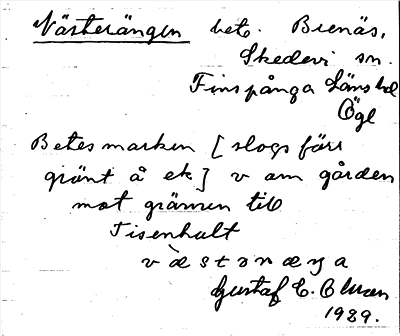 Västerängen bete. Brenäs,
Skedevi sn.
Finspånga Länshd
Ögl
Betesmarken [slogs förr
gränt å ek] v om gården
mot gränsen till
Tisenhult
Gustaf E. Olsson
1989.